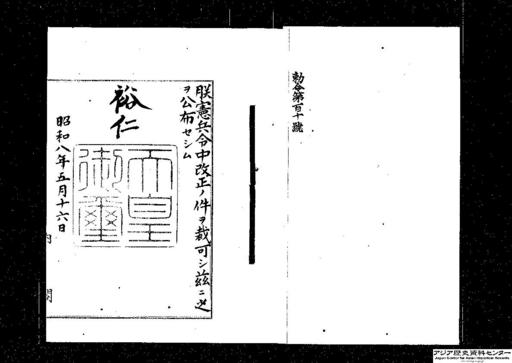 勅令第百十號
朕憲兵令中改正ノ件ヲ裁可シ茲ニ之
ヲ公布セシム
裕仁
天皇御璽
昭和八年五月十六日
内閣
アジア歴史資料センター
Japan Center for Asian Historical Records